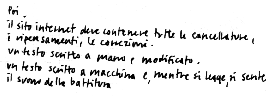 Poi.
il sito internet deve contenere tutte le cancellature,
i ripensamenti, le correzioni.
un testo scritto a mano e modificato.
un testo scritto a macchina e, mentre si legge, si sente
il suono della battitura